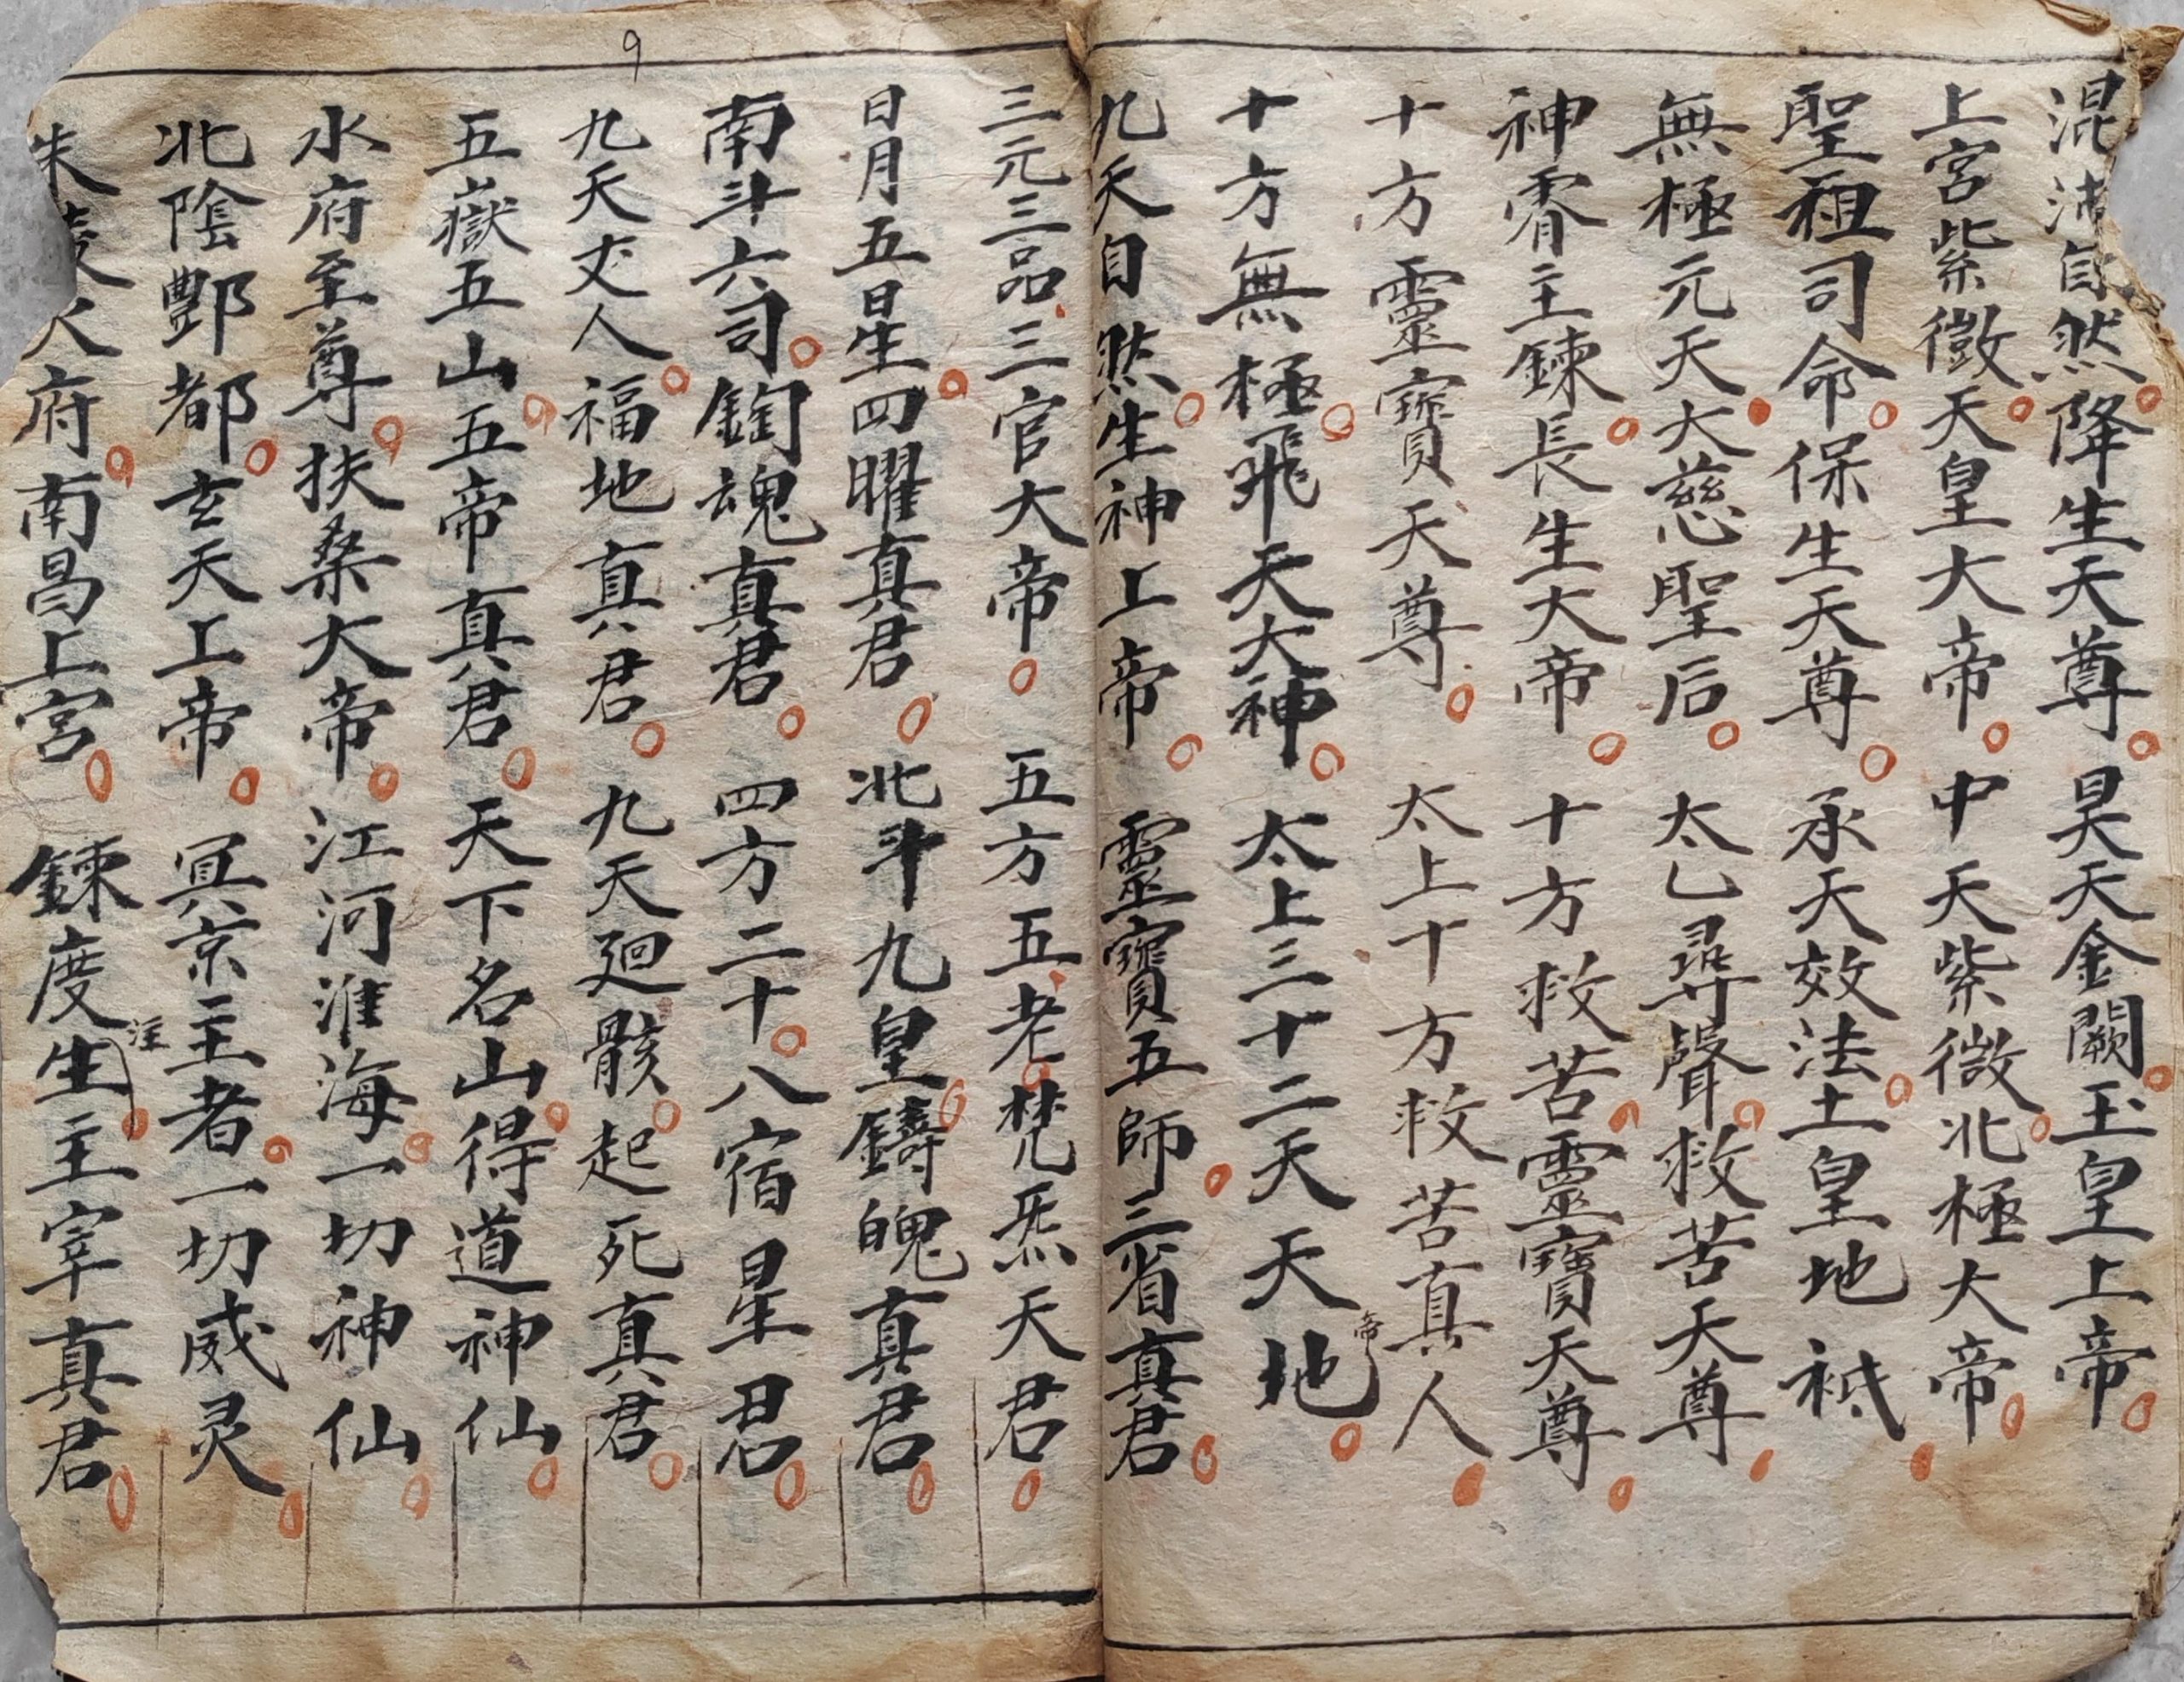 混沌自然降生天尊 昊天金闕玉皇上帝
上宮紫微天皇大帝 中天紫微北極大帝
聖祖司命保生天尊 承天效法土皇地祇
無極元天大慈聖后 太乙尋聲救苦天尊
神霄主鍊長生大帝 十方救苦靈寶天尊
十方靈寶天尊 太上十方救苦真人
十方無極飛天大神 太上三十二天天地帝
九天自然生神上帝 靈寶五師三省真君
三元三品三官大帝 五方五老梵炁天君
日月五星四曜真君 北斗九皇鑄魄真君
南斗六司鍧魂真君 四方二十八宿星君
九天丈人福地真君 九天廻骸起死真君
五嶽五山五帝真君 天下名山得道神仙
水府至尊扶桑大帝 江河淮海一切神仙
北陰酆都玄天上帝 冥京主者一切威灵
朱陵火府南昌上宮 鍊度生主宰真君
9